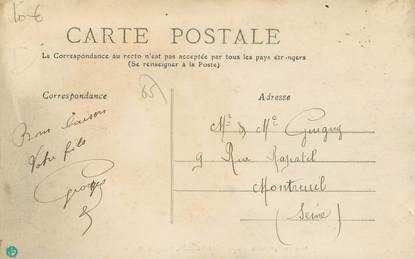 10 €
CARTE POSTALE
La Correspondance au recto n'est pas acceptée par tous les pays étrangers
(Se renseigner à la Poste)
85
Correspondance
Adresse
Bons baisers
Votre fils
Georges
Mr & Me Guigny
9 Rue
Montreuil
(Seine)